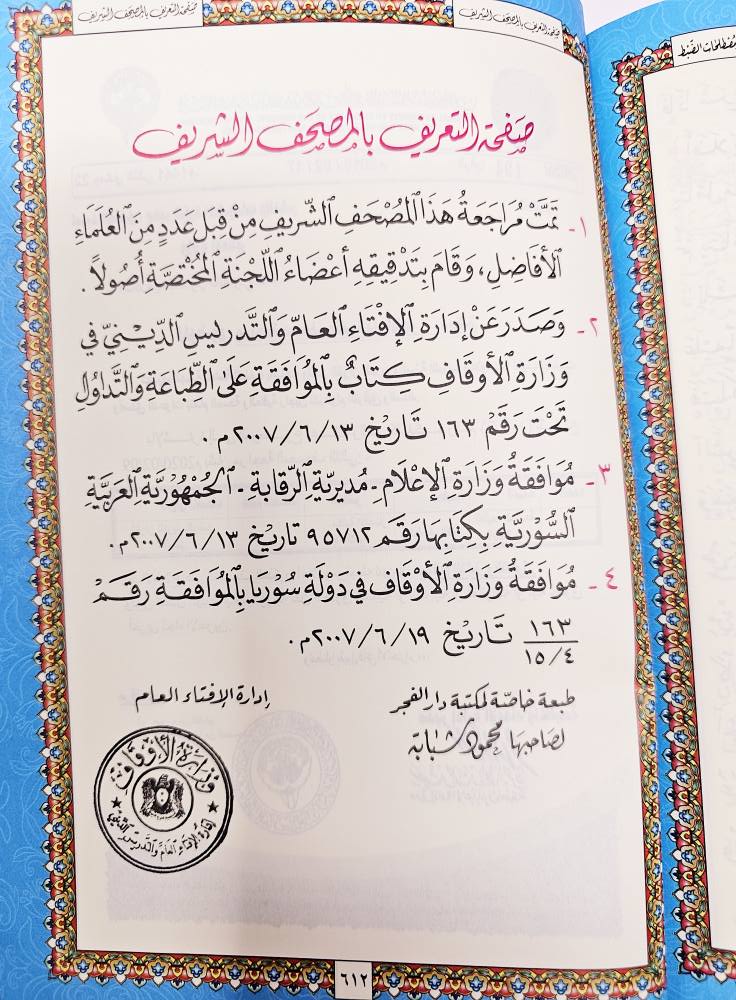 صفحة التعريف بالمصحف الشريف
صفحة التعريف بالمصحف الشريف
مصطلحات الضبط
صَفحَة التَعريف بالمصْحَف الشَريف
١- تَمَّتْ مُرَاجَعَةُ هَذَا ٱلْمُصْحَفِ ٱلشَّرِيفِ مِنْ قِبَلِ عَدَدٍ مِنَ ٱلْعُلَمَاءِ
ٱلْأَفَاضِلِ، وَقَامَ بِتَدْقِيقِهِ أَعْضَاءُ ٱللَّجْنَةِ ٱلْمُخْتَصَّةِ أُصُولاً.
٢- وَصَدَرَ عَنْ إِدَارَةِ ٱلْإِفْتَاءِ ٱلْعَامِّ وَٱلتَّدْرِيسِ ٱلدِّيْنِيِّ فِي
وَزَارَةِ ٱلْأَوْقَافِ كِتَابٌ بِٱلْمُوَافَقَةِ عَلَىٰ ٱلطِّبَاعَةِ وَٱلتَّدَاوُلِ
تَحْتَ رَقَمْ ١٦٣ تَارِيْخ ٢٠٠٧/٦/١٣م.
٣- مُوَافَقَةُ وَزَارَةِ ٱلْإِعْلَامِ - مُدِيرِيَّةِ ٱلرِّقَابَةِ - ٱلْجُمْهُورِيَّةِ ٱلْعَرَبِيَّةِ
ٱلسُّوْرِيَّةِ بِكِتَابِهَا رَقَمْ ٩٥٧١٢ تَارِيْخ ٢٠٠٧/٦/١٣م.
٤- مُوَافَقَةُ وَزَارَةِ ٱلْأَوْقَافِ فِي دَوْلَةِ سُوْرِيَا بِٱلْمُوَافَقَةِ رَقَمْ
١٦٣
١٥/٤ تَارِيْخ ٢٠٠٧/٦/١٩م.
طبعة خاصّة لمكتبة دار الفجر
لصاحبها محمود شبابة
إدارة الإفتاء العام
وزارة الأوقاف
إدارة الإفتاء العام والتدريس الديني
٦١٢